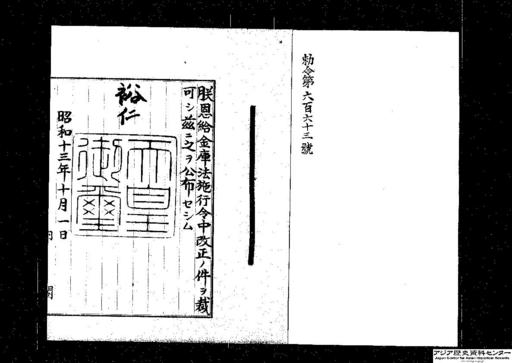 勅令第六百六十三號
朕恩給金庫法施行令中改正ノ件ヲ裁
可シ茲ニ之ヲ公布セシム
裕仁
天皇
御璽
昭和十三年十月一日
内閣
アジア歴史資料センター
Japan Center for Asian Historical Records